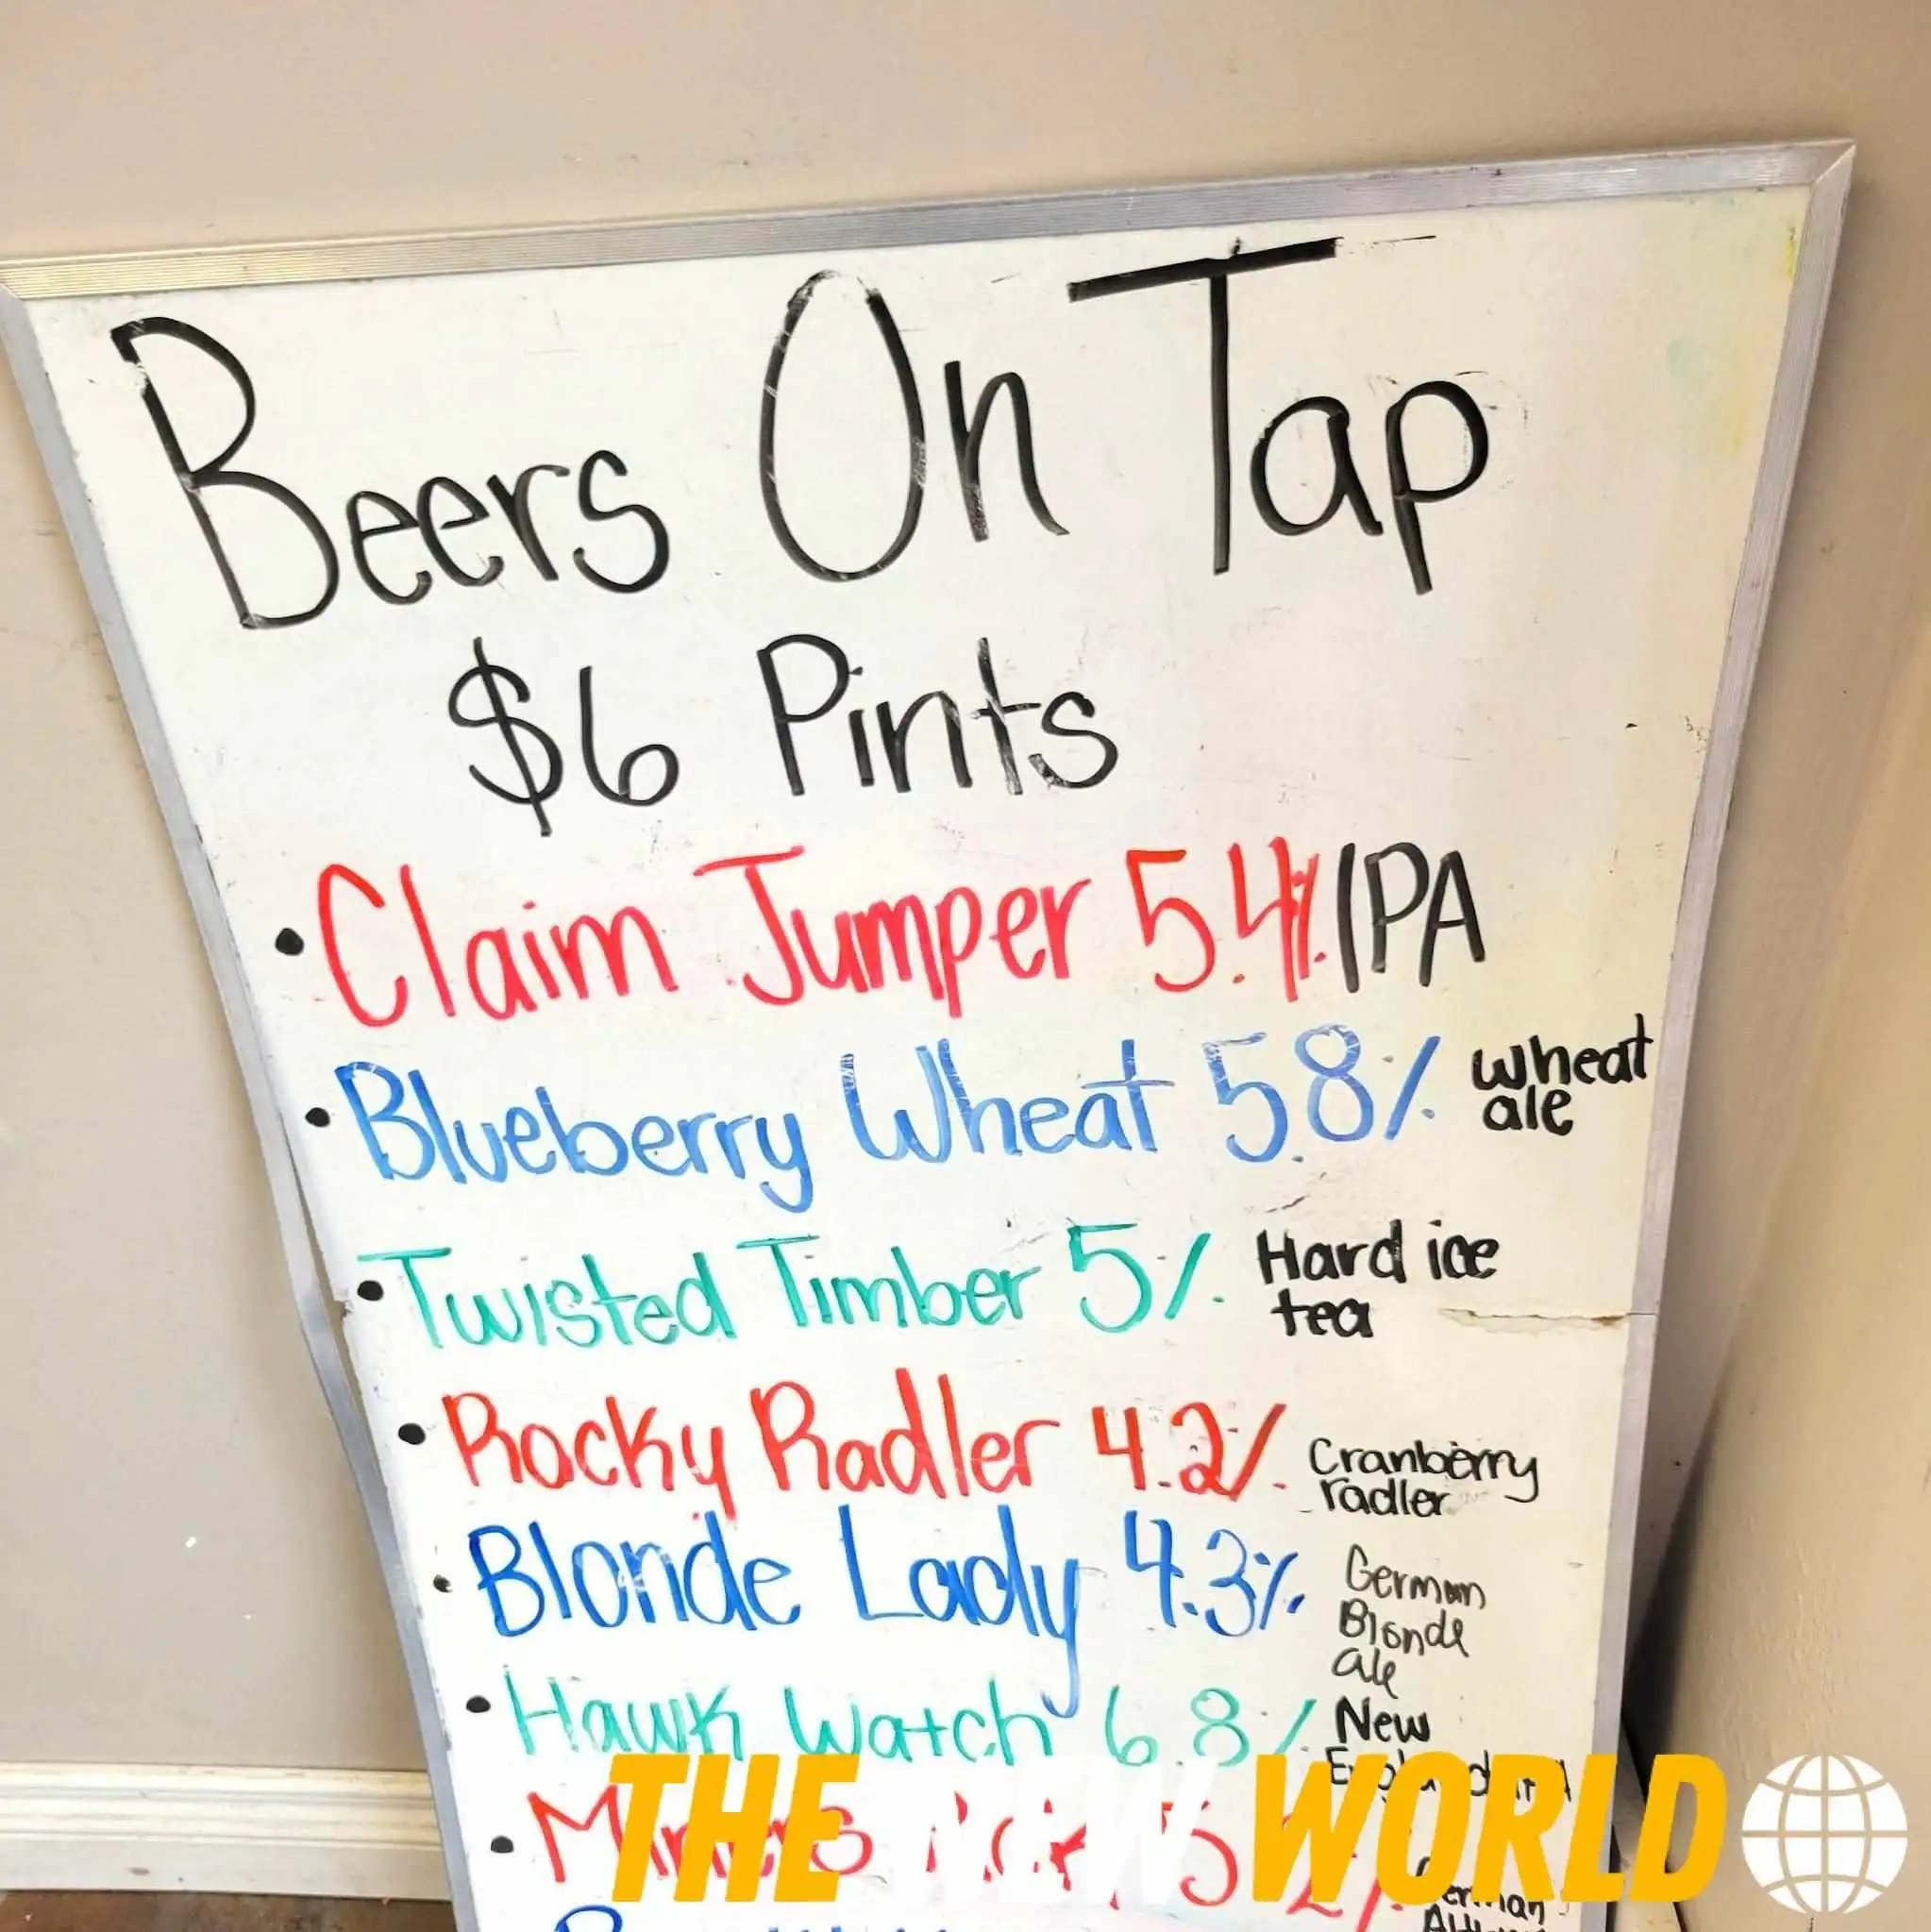 Beers On Tap
$6 Pints
• Claim Jumper 5.4% IPA
• Blueberry Wheat 5.8% wheat
ale
• Twisted Timber 5% Hard ice
tea
• Rocky Radler 4.2% Cranberry
radler
• Blonde Lady 4.3% German
Blonde
ale
• Hawk Watch 6.8% New
England
• Miners
THE NEW WORLD